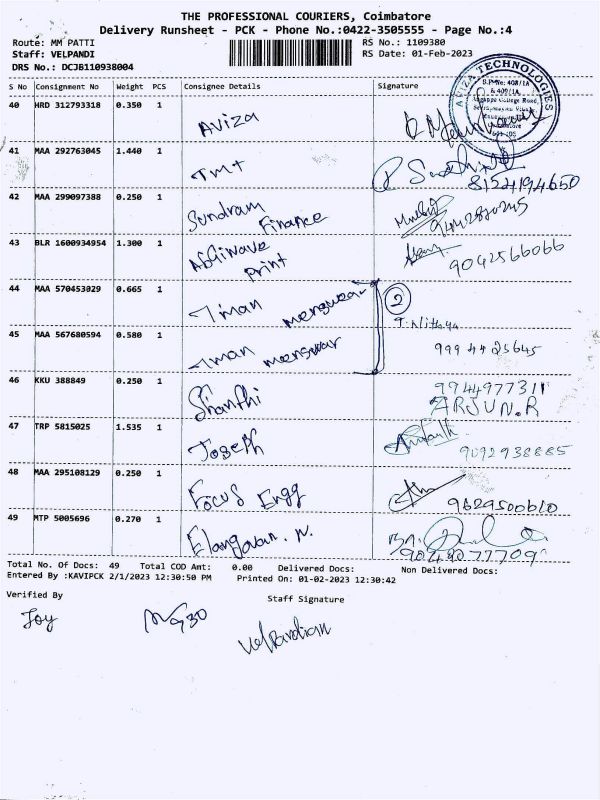 THE PROFESSIONAL COURIERS, Coimbatore
Delivery Runsheet - PCK - Phone No.:0422-3505555 - Page No.:4
Route: MM PATTI
RS No.: 1109380
Staff: VELPANDI
RS Date: 01-Feb-2023
DRS No.: DCJB110938004
S No Consignment No Weight PCS Consignee Details Signature
40 HRD 312793318 0.350 1 Aviza
AVIZA TECHNOLOGIES
41 MAA 292763045 1.440 1 TMT
8124194650
42 MAA 299097388 0.250 1 Sundram Finance
43 BLR 1600934954 1.300 1 Print
9042566066
44 MAA 570453029 0.665 1 Iman menswear
2
T. Nithya
45 MAA 567680594 0.580 1 Iman menswear
9994425645
46 KKU 388849 0.250 1 Shanthi
9944977311
ARJUN.R
47 TRP 5815025 1.535 1 Joseph
9092938885
48 MAA 295108129 0.250 1 Focus Engg
9629500610
49 MTP 5005696 0.270 1 Elangovan. N.
9049077709
Total No. Of Docs: 49 Total COD Amt: 0.00 Delivered Docs: Non Delivered Docs:
Entered By :KAVIPCK 2/1/2023 12:30:50 PM Printed On: 01-02-2023 12:30:42
Verified By
Staff Signature
Joy
Velpandian